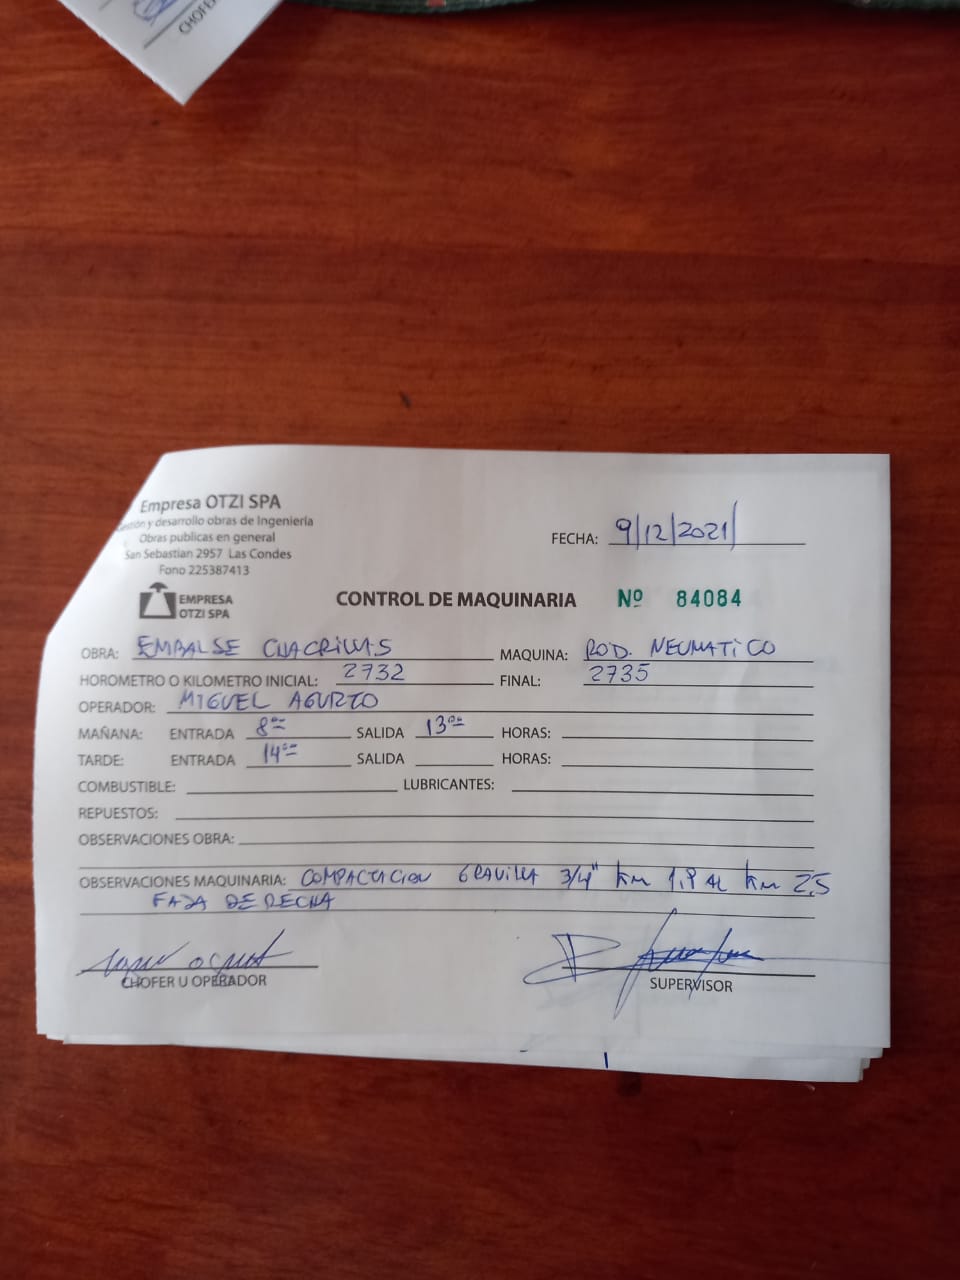 CHOFER
Empresa OTZI SPA
Gestion y desarrollo obras de Ingenieria
Obras publicas en general
San Sebastian 2957 Las Condes
Fono 225387413
EMPRESA
OTZI SPA
FECHA: 9/12/2021
CONTROL DE MAQUINARIA Nº 84084
OBRA: EMBALSE CHACRILLAS MAQUINA: ROD. NEUMATICO
HOROMETRO O KILOMETRO INICIAL: 2732 FINAL: 2735
OPERADOR: MIGUEL AGURTO
MAÑANA: ENTRADA 8⁰⁰ SALIDA 13⁰⁰ HORAS:
TARDE: ENTRADA 14⁰⁰ SALIDA HORAS:
COMBUSTIBLE: LUBRICANTES:
REPUESTOS:
OBSERVACIONES OBRA:
OBSERVACIONES MAQUINARIA: COMPACTACION GRAVILLA 3/4" km 1,9 AL km 2,5
FAJA DERECHA
CHOFER U OPERADOR
SUPERVISOR